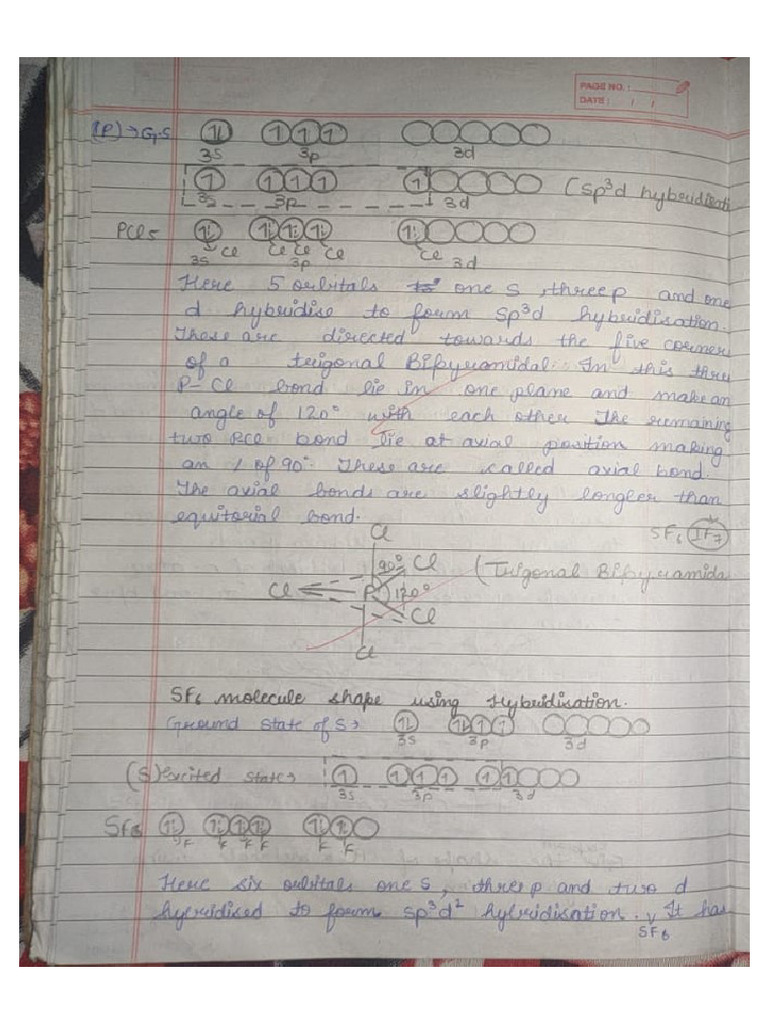 PAGE NO. :
DATE : / /
(P) → G.S
3s 3p 3d
3s 3p 3d (sp³d hybridisati
PCl5
Cl Cl Cl Cl Cl
3s 3p 3d
Here 5 orbitals one s, three p and one
d hybridise to form sp³d hybridisation.
These are directed towards the five corner
of a trigonal Bipyramidal. In this thre
P-Cl bond lie in one plane and make an
angle of 120° with each other. The remaining
two PCl bond lie at axial position making
an ∠ of 90°. These are called axial bond.
The axial bonds are slightly longer than
equitorial bond.
SF6 IF7
Cl
90° Cl (Trigonal Bipyramida
Cl P 120°
Cl
Cl
SF6 molecule shape using Hybridisation.
Ground State of S→
3s 3p 3d
(S) excited state→
3s 3p 3d
SF6
F F F F F F
Here six orbitals one s, three p and two d
hybridised to form sp³d² hybridisation. It has
SF6